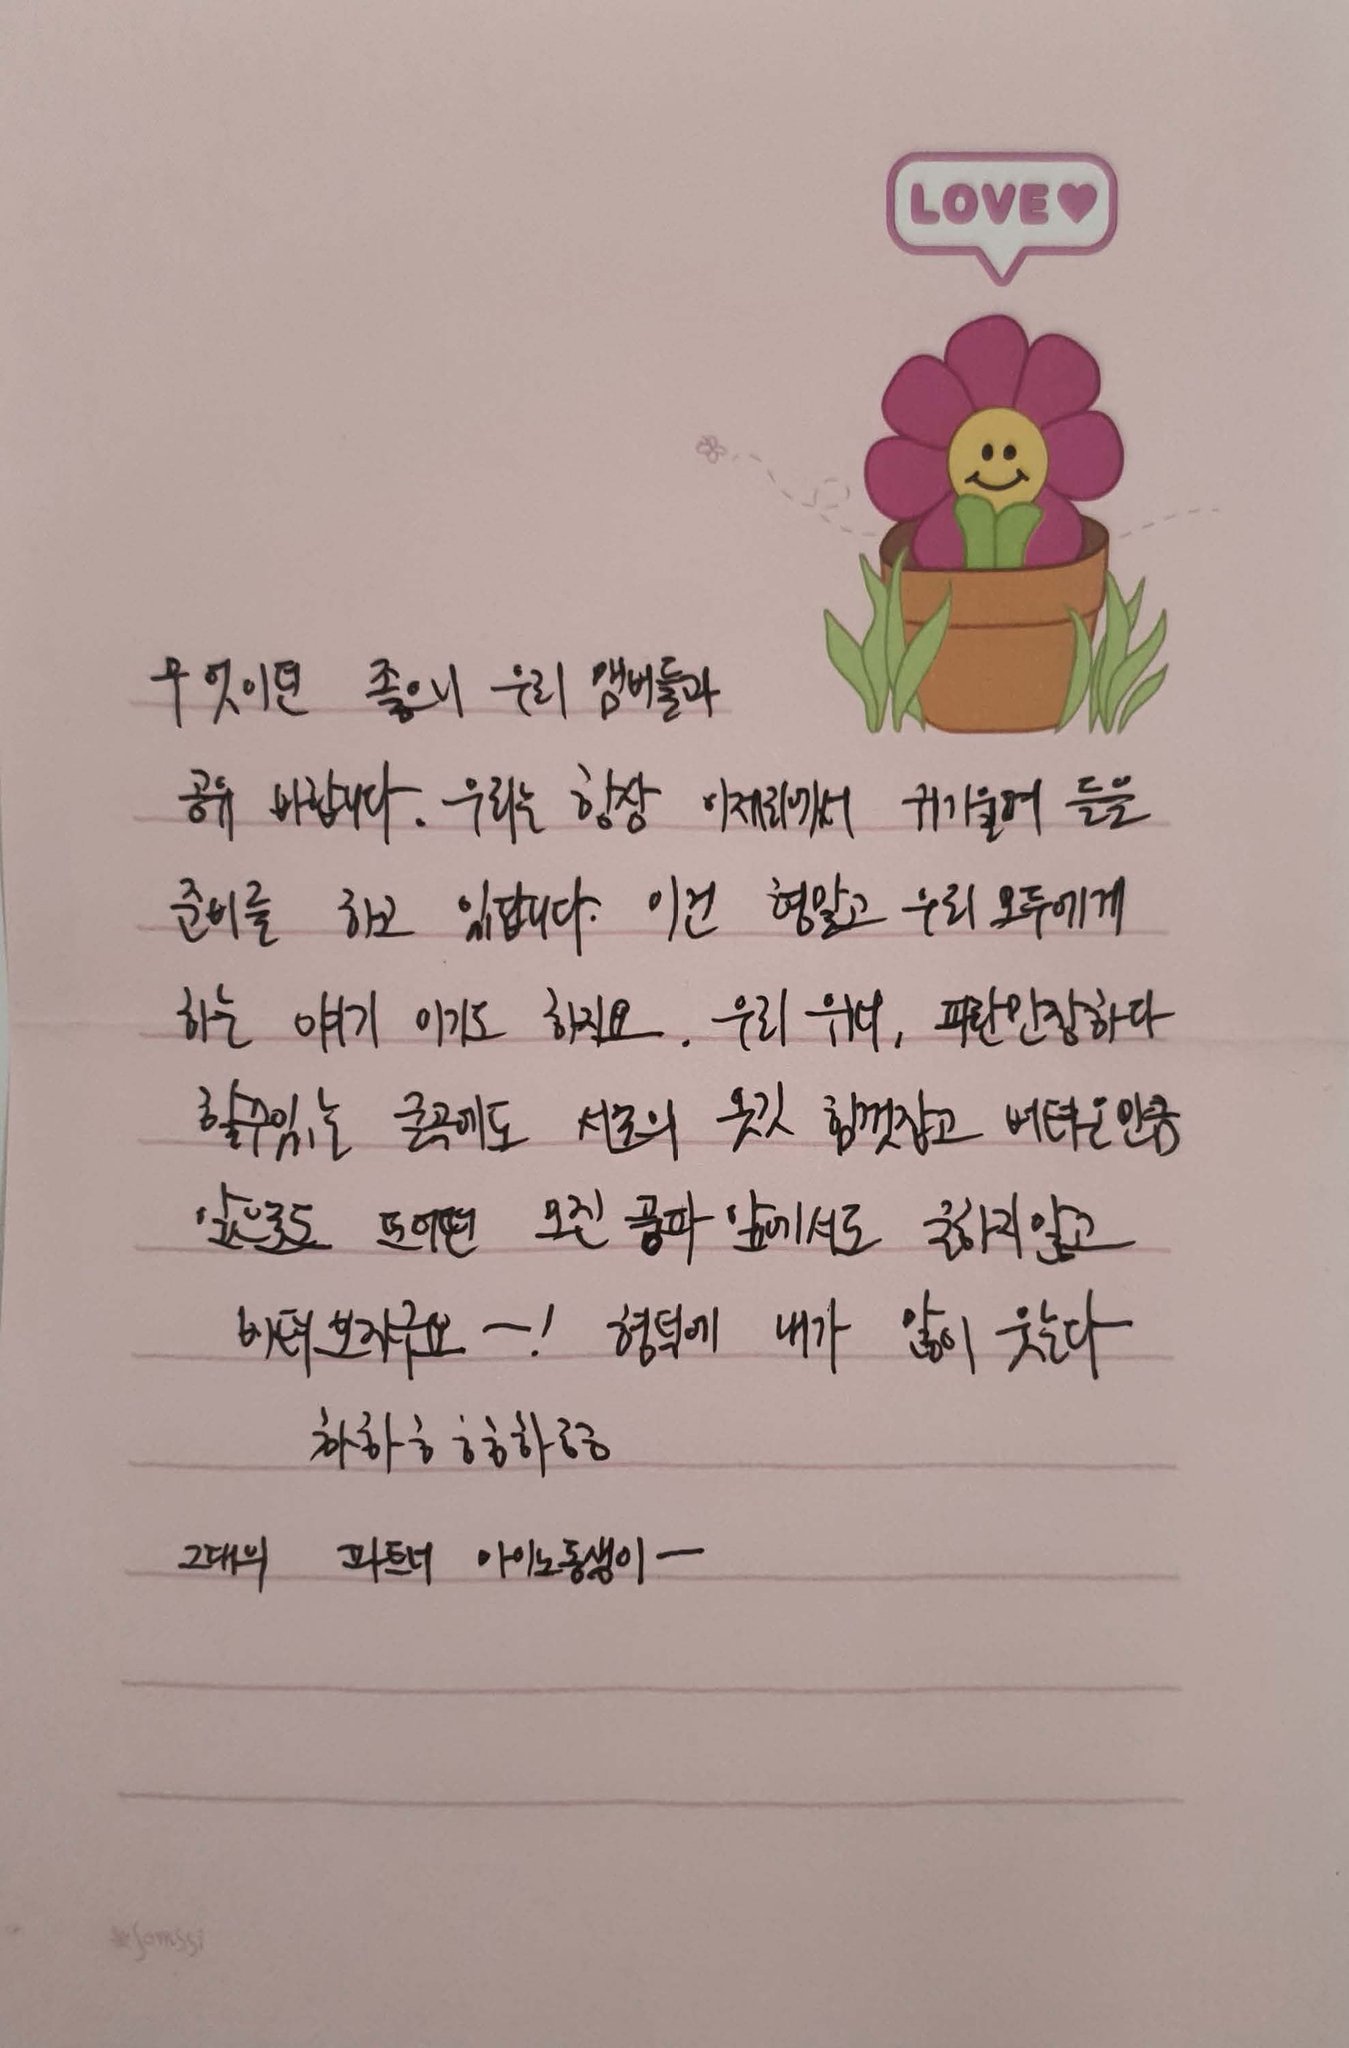 LOVE
무엇이던 좋으니 우리 맴버들과
공유 바랍니다. 우리는 항상 이자리에서 귀기울여 들을
준비를 하고 있답니다. 이건 형말고 우리 모두에게
하는 얘기 이기도 하지요. 우리 위너, 파란만장하다
할수있는 굴곡에도 서로의 옷깃 힘껏잡고 버텨온만큼
앞으로도 뜨어떤 모진 풍파 앞에서도 굴하지말고
버텨보자구요 ~! 형덕에 내가 많이 웃는다
하하
그대의 파트너 아이노동생이ー
somssi